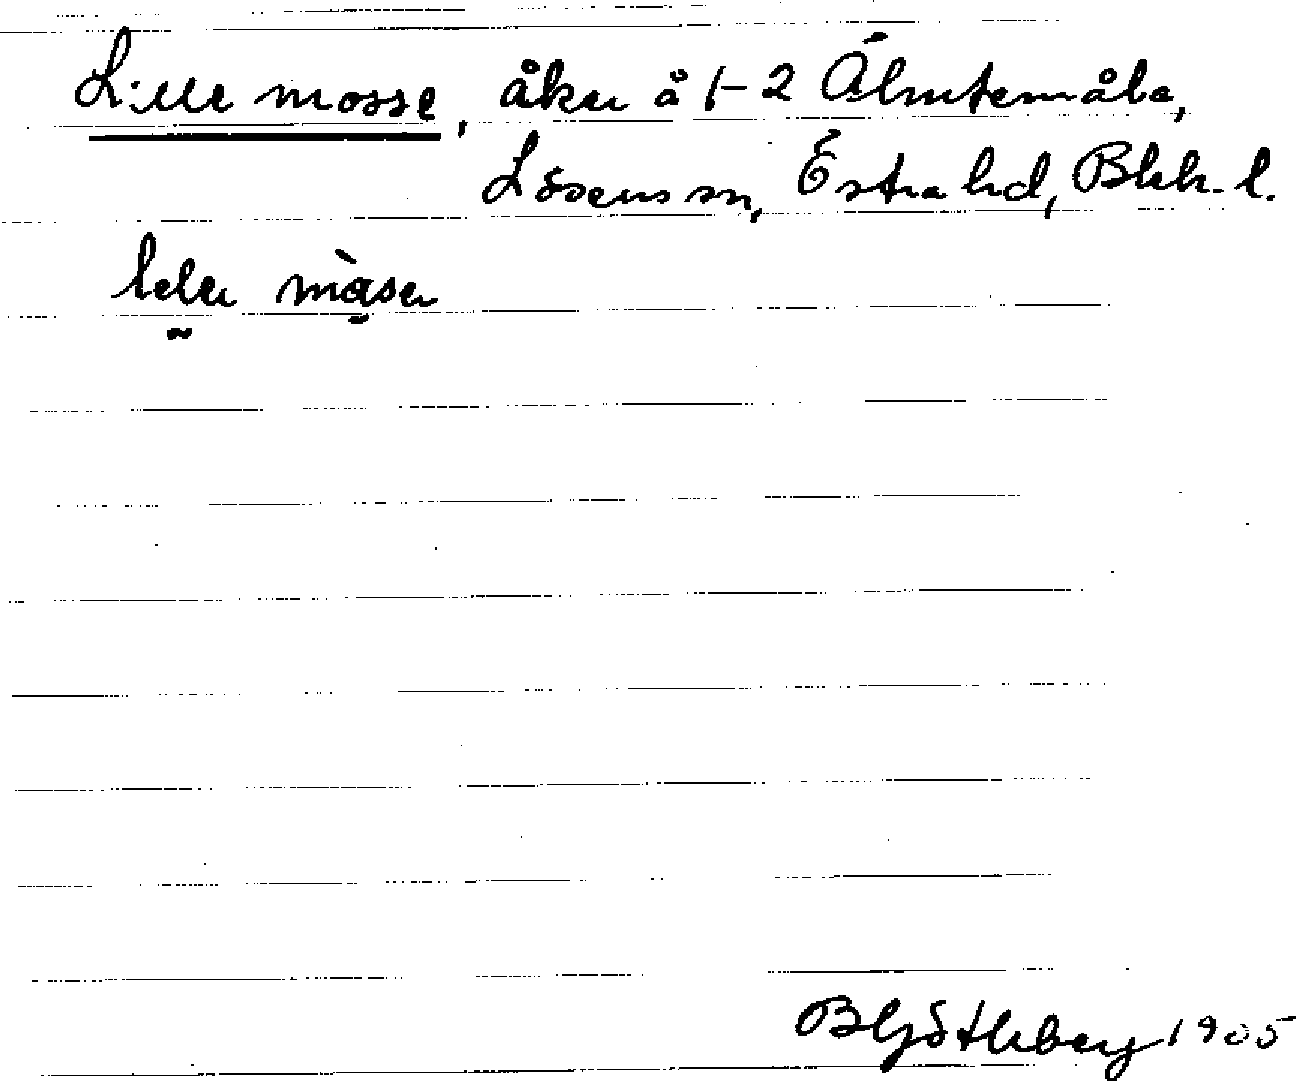 Lille mosse, åker å 1-2 Älmtemåla,
Lösens sn, Östra hd, Blek. l.
lelα mòsα
B Götlberg 1905